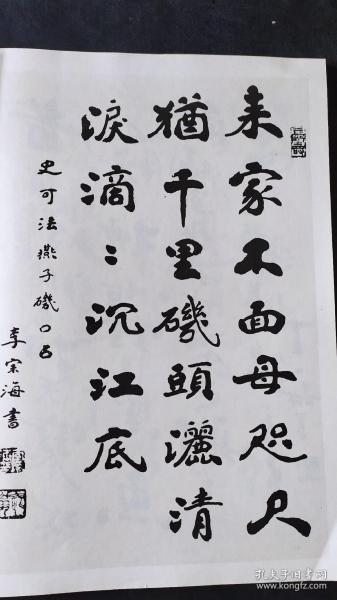 来家不面母咫尺
猶千里磯頭灑清
淚滴〻沉江底
史可法燕子磯口占
李宗海書
孔夫子旧书网
www.kongfz.com